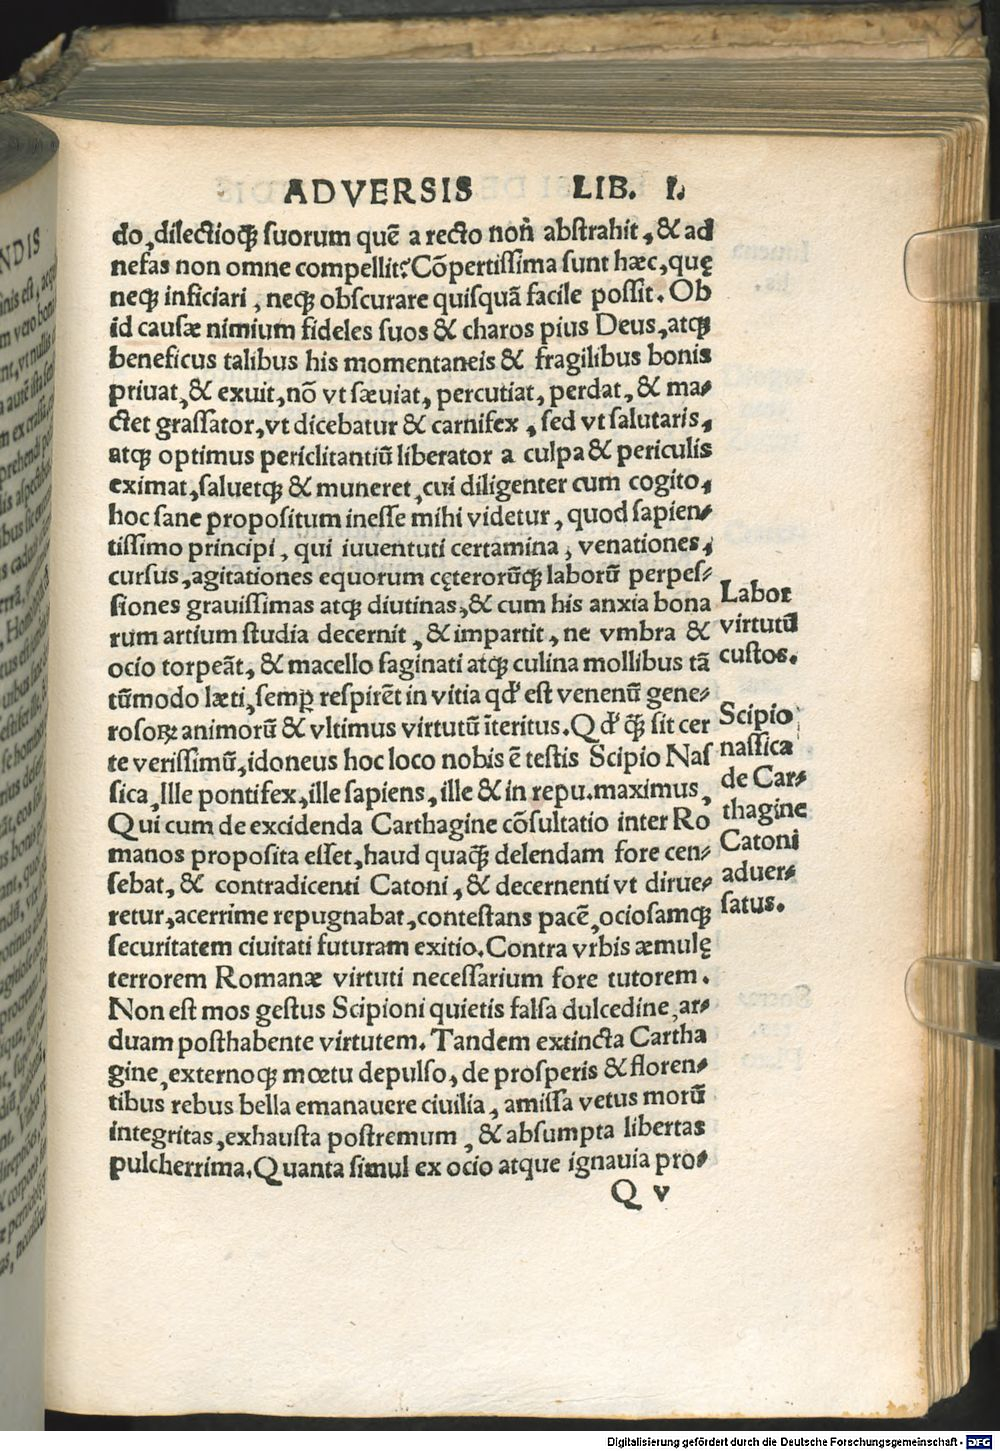 ADVERSIS LIB. I.
do, dilectioq̃ suorum quẽ a recto non̄ abstrahit, & ad
nefas non omne compellit? Cõpertissima sunt hæc, quę
neq̃ inficiari, neq̃ obscurare quisquã facile possit. Ob
id causæ nimium fideles suos & charos pius Deus, atq̃
beneficus talibus his momentaneis & fragilibus bonis
priuat, & exuit, nõ vt sæuiat, percutiat, perdat, & ma⸗
ctet grassator, vt dicebatur & carnifex, sed vt salutaris,
atq̃ optimus periclitantiũ liberator a culpa & periculis
eximat, saluetq̃ & muneret, cui diligenter cum cogito,
hoc sane propositum inesse mihi videtur, quod sapien⸗
tissimo principi, qui iuuentuti certamina, venationes,
cursus, agitationes equorum cęterorũq̃ laborũ perpes⸗
siones grauissimas atq̃ diutinas, & cum his anxia bona
rum artium studia decernit, & impartit, ne vmbra &
ocio torpeãt, & macello saginati atq̃ culina mollibus tã
tũmodo læti, semꝑ respirẽt in vitia qd̕ est venenũ gene⸗
rosoꝝ animorũ & vltimus virtutũ ĩteritus. Qd̕ q̃ sit cer
te verissimũ, idoneus hoc loco nobis ẽ testis Scipio Nas
sica, Ille pontifex, ille sapiens, ille & in repu. maximus,
Qui cum de excidenda Carthagine cõsultatio inter Ro
manos proposita esset, haud quaq̃ delendam fore cen⸗
sebat, & contradicenti Catoni, & decernenti vt dirue⸗
retur, acerrime repugnabat, contestans pacẽ, ociosamq̃
securitatem ciuitati futuram exitio. Contra vrbis æmulę
terrorem Romanæ virtuti necessarium fore tutorem.
Non est mos gestus Scipioni quietis falsa dulcedine, ar⸗
duam posthabente virtutem. Tandem extincta Cartha
gine, externoq̃ mœtu depulso, de prosperis & floren⸗
tibus rebus bella emanauere ciuilia, amissa vetus morũ
integritas, exhausta postremum, & absumpta libertas
pulcherrima. Quanta simul ex ocio atque ignauia pro⸗
Q v
Labor
virtutũ
custos.
Scipio
nassica
de Car⸗
thagine
Catoni
aduer⸗
satus.
Digitalisierung gefördert durch die Deutsche Forschungsgemeinschaft - DFG